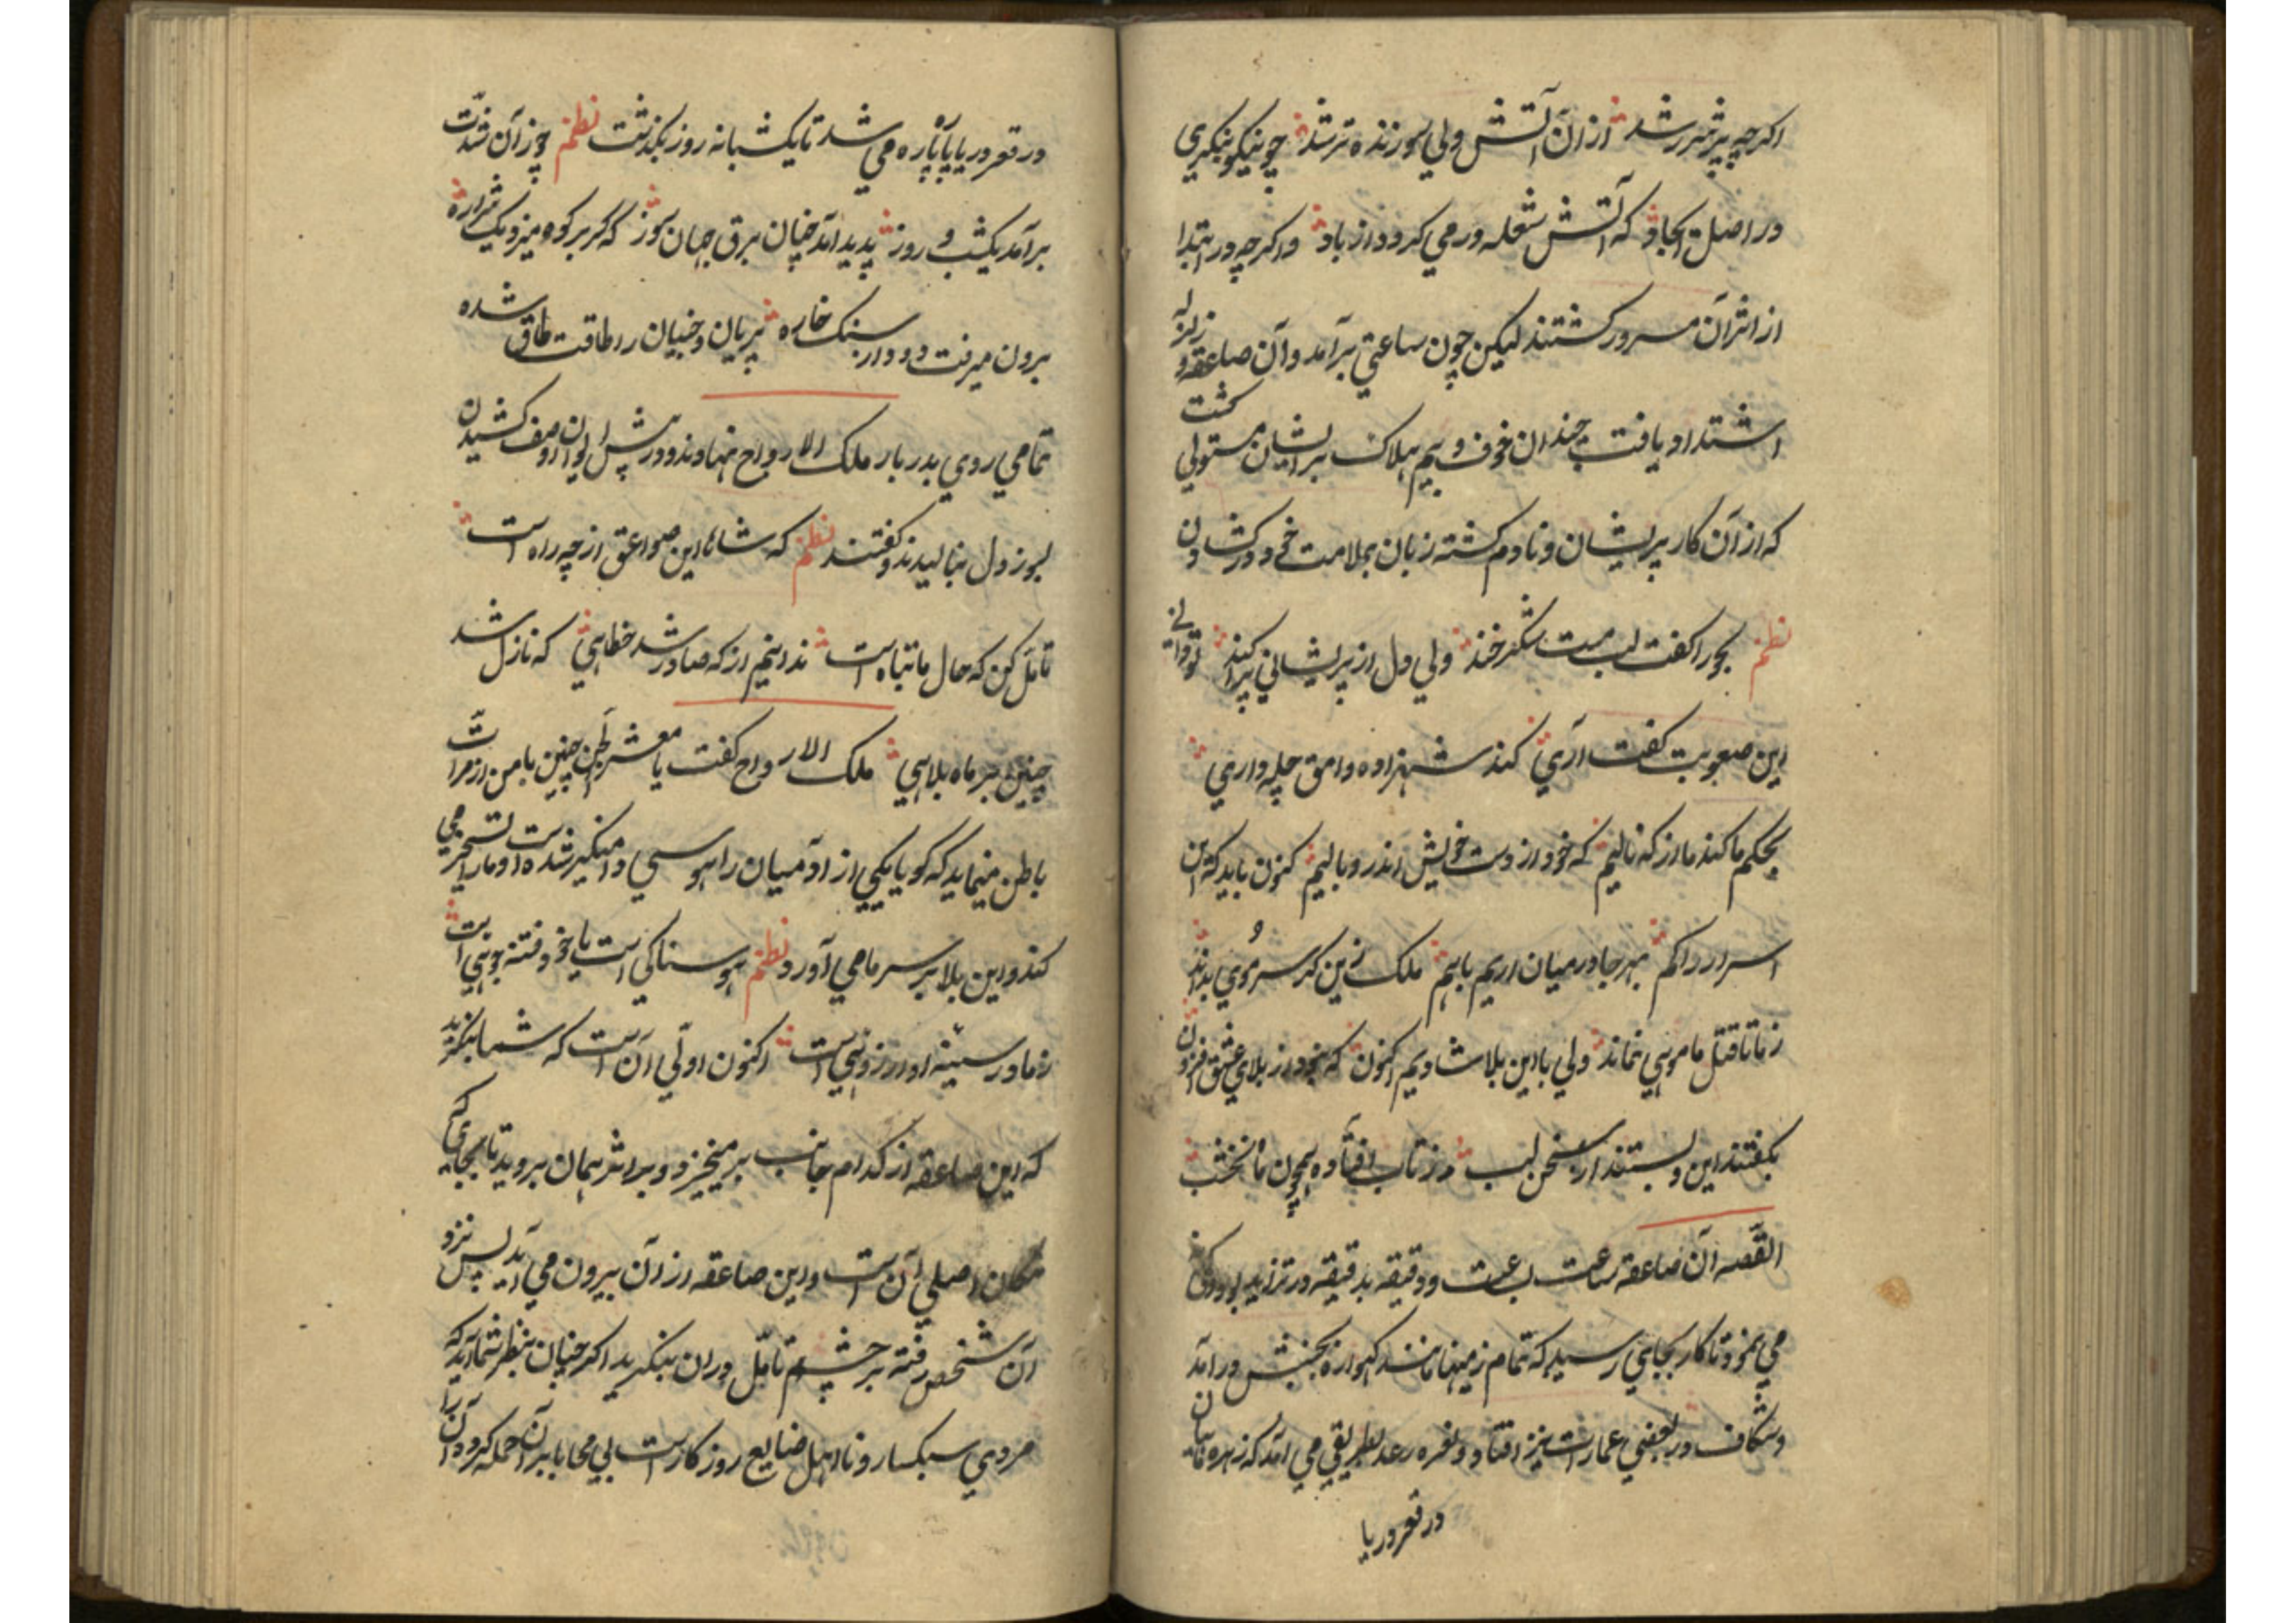 اکرچه پیشتر شد از ان آتش ولی سوزنده تر شد چو نیکو بنکری
در اصل ایجاد که آتش شعله ور می کردد از باد و اکرچه در ابتدا
از اثر آن مسرور کشتند لیکن چون ساعتی برآمد و آن صاعقه و زلزله
اشتداد یافت چندان خوف و بیم هلاک بر ایشان مستولی کشت
که از آن کار پریشان و نادم کشته زبان بملامت خود درکشادن
نظم بجورا کفت لب مست شکرخند ولی دل از پریشانی پراکند توانی
این صعوبت کفت آری کند شهزاده وامق چله داری
بحکم ما کند ما از که نالیم که خود از دست خویش اندر وبالیم کنون باید که این
اسرار راکم بهرجا در میان اریم باهم ملک زین کر سر موی بداند
ز ما تا قتل ما موئی نماند ولی با این بلا شادیم اکنون که بخود از بلای عشق افزون
بکفتند این و بستند از سخن لب در تاب افتاده همچون ماه نخشب
القصه آن صاعقه ساعت بساعت و دقیقه بدقیقه در تزاید بود
می نمود تا کار بجایی رسید که تمام زمینها مانند کهواره بجنبش درآمد
و شکاف در بعضی عمارات نیز افتاد و نعره رعد بطریقی می آمد که زهره نهنکان
در قعر دریا
در قعر دریا پاره پاره می شد تا یکشبانه روز بکذشت نظم چو زان شدّت
برآمد یکشب و روز پدید آمد چنان برق جهان سوز که کر بر کوه میزد یک شراره
برون میرفت دود از سنک خاره پریان و جنیان را طاقت طاق شده
تمامی روی بدربار ملک الارواح نهادند و در پیش ایوان او صف کشیدن
بسوز دل بنالیدند و کفتند نظم که شاها این صواعق از چه راه است
تامل کن که حال ما تباه است ندانیم از که صادر شد خطایی که نازل شد
چنین بر ماه بلایی ملک الارواح کفت یا معشر الجن چنین بامن از مرات
باطن مینماید که کویا یکی از آدمیان را هوسی دامنکیر شده است او ما را تسخیر می
کند و این بلا بر سر ما می آورد نظم هوسناکی است یا خود فتنه جویی است
ز ما در سینه او ارزویی است اکنون اولی آن است که شما بنکرید
که این صاعقه از کدام جانب برمیخیزد و بر اثر همان بروید تا بجای که
مکان اصلی آن است و این صاعقه از آن بیرون می آید پس نزد
آن شخص رفته بر چشم تامّل دران بنکرید اکر چنان بنظر شما آید که
مردی سبکسار و نااهل ضایع روزکار است بی محابا بر آن حمله کرده آن را